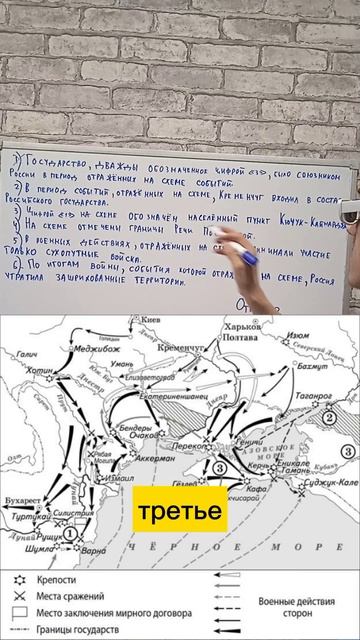 1) Государство, дважды обозначенное цифрой «3», было союзником
России в период отражённых на схеме событий.
2) В период событий, отражённых на схеме, Кременчуг входил в соста
Российского государства.
3) Цифрой «1» на схеме обозначен населённый пункт Кючук-Кайнардж
4) На схеме отмечены границы Речи
5) В военных действиях, отражённых на принимали участие
только сухопутные войска.
6) По итогам войны, события которой отраж на схеме, Россия
утратила заштрихованные территории.
От
Киев
Харьков
Полтава
Изюм
Галич
Меджибож
Кременчуг
Днепр
Северский Донец
Бахмут
Хотин
Умань
Елизаветград
Екатерининшанец
Таганрог
Днестр
Прут
Днепр
2
Бендеры
Очаков
Перекоп
Геничи
АЗОВСКОЕ
МОРЕ
3
Рябая
Могила
Аккерман
Еникале
Тамань
Кубань
Керчь
3
Измаил
Гёзлев
Кафа
Суджук-Кале
Бухарест
Бахчисарай
Силистрия
Туртукай
Дунай
Рущук
1
Шумла
Варна
третье
ЧЁРНОЕ МОРЕ
Крепости
Места сражений
Место заключения мирного договора
Границы государств
Военные действия
сторон